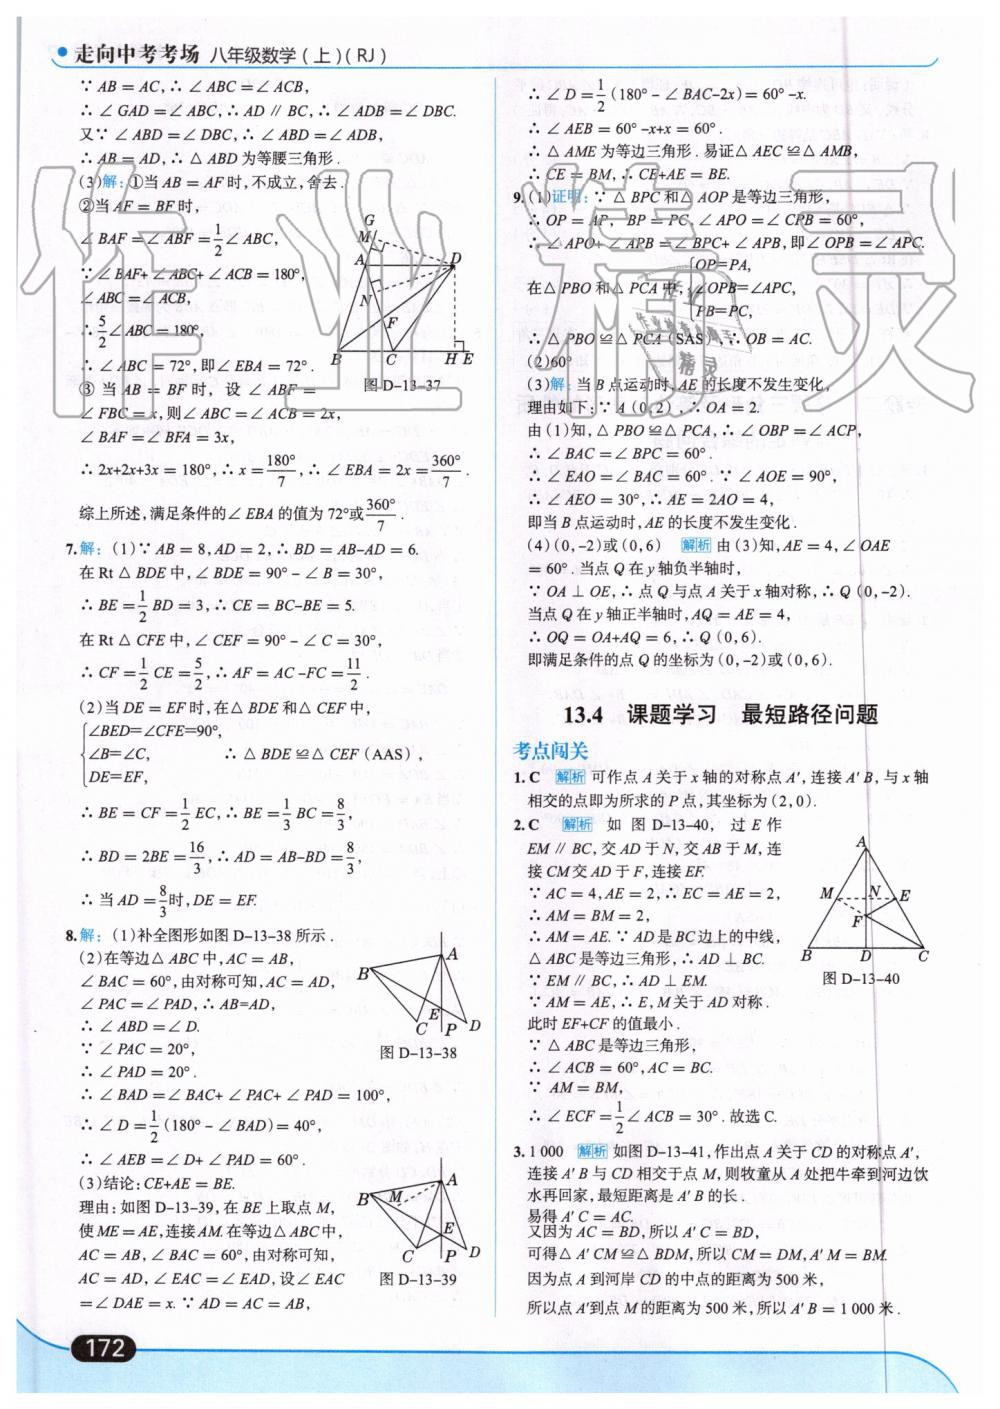 走向中考考场 八年级数学(上)(RJ)
∵ AB = AC,∴ ∠ ABC = ∠ ACB,
∴ ∠ GAD = ∠ ABC,∴ AD // BC,∴ ∠ ADB = ∠ DBC.
又∵ ∠ ABD = ∠ DBC,∴ ∠ ABD = ∠ ADB,
∴ AB = AD,∴ △ ABD 为等腰三角形.
(3)解:①当 AB = AF 时,不成立,舍去.
②当 AF = BF 时,
∠ BAF = ∠ ABF = 1/2 ∠ ABC,
∵ ∠ BAF+ ∠ ABC+ ∠ ACB = 180°,
∠ ABC = ∠ ACB,
∴ 5/2 ∠ ABC = 180°.
∴ ∠ ABC = 72°,即∠ EBA = 72°.
③ 当 AB = BF 时, 设 ∠ ABF =
∠ FBC = x,则∠ ABC = ∠ ACB = 2x,
∠ BAF = ∠ BFA = 3x,
∴ 2x+2x+3x = 180°,∴ x = 180°/7,∴ ∠ EBA = 2x = 360°/7.
综上所述,满足条件的∠ EBA 的值为 72°或 360°/7.
G M A D N F B C H E
图 D-13-37
7.解: (1)∵ AB = 8,AD = 2,∴ BD = AB-AD = 6.
在 Rt △ BDE 中,∠ BDE = 90° - ∠ B = 30°,
∴ BE = 1/2 BD = 3,∴ CE = BC-BE = 5.
在 Rt △ CFE 中,∠ CEF = 90° - ∠ C = 30°,
∴ CF = 1/2 CE = 5/2,∴ AF = AC -FC = 11/2.
(2)当 DE = EF 时,在△ BDE 和△ CEF 中,
∠BED=∠CFE=90°,
∠B=∠C, ∴ △ BDE ≌△ CEF (AAS),
DE=EF,
∴ BE = CF = 1/2 EC,∴ BE = 1/3 BC = 8/3,
∴ BD = 2BE = 16/3,∴ AD = AB-BD = 8/3,
∴ 当 AD = 8/3 时,DE = EF.
8.解: (1)补全图形如图 D-13-38 所示.
(2)在等边△ ABC 中,AC = AB,
∠ BAC = 60°,由对称可知,AC = AD,
∠ PAC = ∠ PAD,∴ AB=AD,
∴ ∠ ABD = ∠ D.
∵ ∠ PAC = 20°,
∴ ∠ PAD = 20°.
∴ ∠ BAD = ∠ BAC+ ∠ PAC+ ∠ PAD = 100°,
∴ ∠ D = 1/2 (180° - ∠ BAD) = 40°,
∴ ∠ AEB = ∠ D+ ∠ PAD = 60°.
A B E C P D
图 D-13-38
(3)结论:CE+AE = BE.
理由:如图 D-13-39,在 BE 上取点 M,
使 ME = AE,连接 AM. 在等边△ ABC 中,
AC = AB,∠ BAC = 60°,由对称可知,
AC = AD,∠ EAC = ∠ EAD,设∠ EAC
= ∠ DAE = x. ∵ AD = AC = AB,
A B M E C P D
图 D-13-39
∴ ∠ D = 1/2 (180° - ∠ BAC-2x) = 60° -x.
∴ ∠ AEB = 60° -x+x = 60°.
∴ △ AME 为等边三角形. 易证△ AEC ≌△ AMB,
∴ CE = BM,∴ CE+AE = BE.
9.(1)证明:∵ △ BPC 和△ AOP 是等边三角形,
∴ OP = AP, BP = PC,∠ APO = ∠ CPB = 60°,
∴ ∠ APO+ ∠ APB = ∠ BPC+ ∠ APB,即∠ OPB = ∠ APC.
OP=PA,
在△ PBO 和△ PCA 中, ∠OPB=∠APC,
PB=PC,
∴ △ PBO ≌△ PCA (SAS),∴ OB = AC.
(2)60°
(3)解:当 B 点运动时,AE 的长度不发生变化,
理由如下:∵ A (0,2),∴ OA = 2.
由(1)知,△ PBO ≌△ PCA,∴ ∠ OBP = ∠ ACP,
∴ ∠ BAC = ∠ BPC = 60°.
∴ ∠ EAO = ∠ BAC = 60°. ∵ ∠ AOE = 90°,
∴ ∠ AEO = 30°,∴ AE = 2AO = 4,
即当 B 点运动时,AE 的长度不发生变化.
(4)(0,-2)或(0,6) 解析 由(3)知,AE = 4,∠ OAE
= 60°. 当点 Q 在 y 轴负半轴时,
∵ OA ⊥ OE,∴ 点 Q 与点 A 关于 x 轴对称,∴ Q (0,-2).
当点 Q 在 y 轴正半轴时,AQ = AE = 4,
∴ OQ = OA+AQ = 6,∴ Q (0,6).
即满足条件的点 Q 的坐标为(0,-2)或(0,6).
13.4 课题学习 最短路径问题
考点闯关
1.C 解析 可作点 A 关于 x 轴的对称点 A′,连接 A′ B,与 x 轴
相交的点即为所求的 P 点,其坐标为(2,0).
2.C 解析 如 图 D-13-40, 过 E 作
EM // BC,交 AD 于 N,交 AB 于 M,连
接 CM交 AD 于 F,连接 EF.
∵ AC = 4,AE = 2,∴ EC = AE = 2,
∴ AM = BM = 2,
∴ AM = AE. ∵ AD 是 BC 边上的中线,
△ ABC 是等边三角形,∴ AD ⊥ BC.
∵ EM // BC,∴ AD ⊥ EM.
∵ AM = AE,∴ E,M 关于 AD 对称.
此时 EF+CF 的值最小.
∵ △ ABC 是等边三角形,
∴ ∠ ACB = 60°,AC = BC.
∵ AM = BM,
∴ ∠ ECF = 1/2 ∠ ACB = 30°. 故选 C.
A M N E F B D C
图 D-13-40
3.1 000 解析 如图 D-13-41,作出点 A 关于 CD 的对称点 A′,
连接 A′ B 与 CD 相交于点 M,则牧童从 A 处把牛牵到河边饮
水再回家,最短距离是 A′ B 的长.
易得 A′ C = AC.
又因为 AC = BD,所以 A′ C = BD,
可得△ A′ CM ≌△ BDM,所以 CM = DM,A′ M = BM.
因为点 A 到河岸 CD 的中点的距离为 500 米,
所以点 A′到点 M 的距离为 500 米,所以 A′ B = 1 000 米.
172
作业精灵